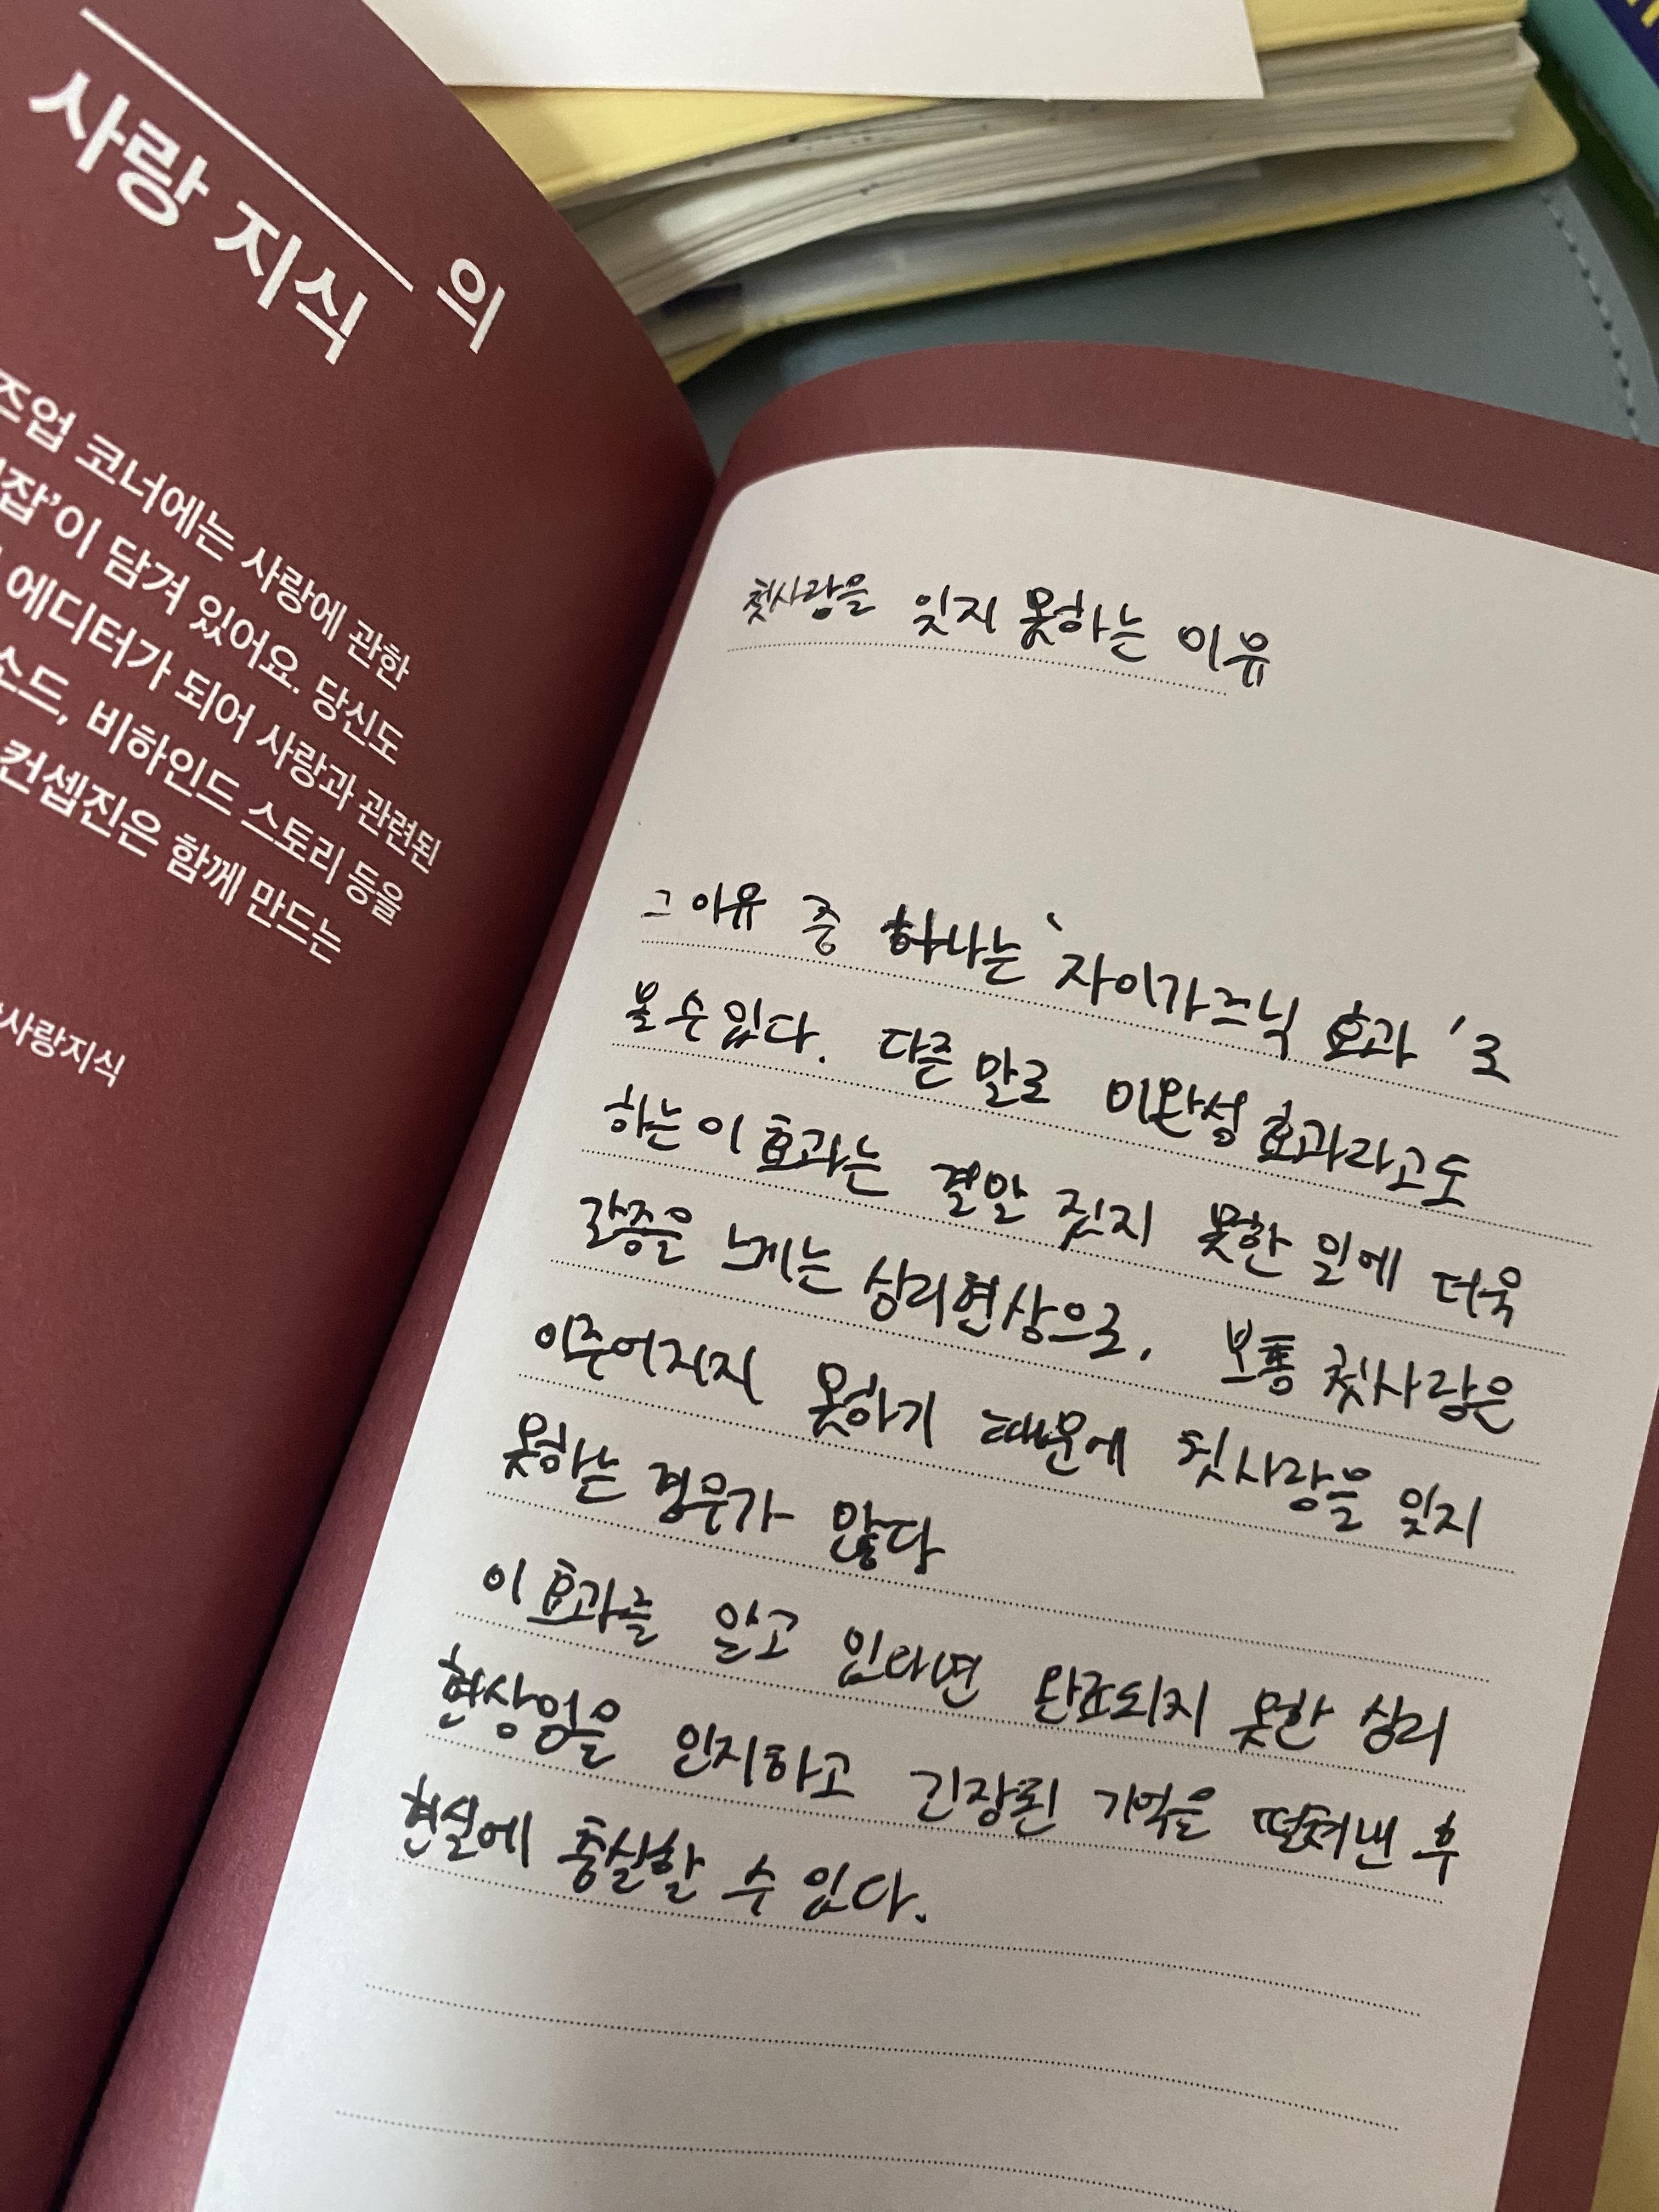 의
사랑 지식
즈업 코너에는 사랑에 관한
잡’이 담겨 있어요. 당신도
에디터가 되어 사랑과 관련된
소드, 비하인드 스토리 등을
컨셉진은 함께 만드는
사랑지식
첫사랑을 잊지 못하는 이유
그 이유 중 하나는 '자이가르닉 효과'로
볼 수 있다. 다른 말로 미완성 효과라고도
하는 이 효과는 결말 짓지 못한 일에 더욱
갈증을 느끼는 심리현상으로, 보통 첫사랑은
이루어지지 못하기 때문에 첫사랑을 잊지
못하는 경우가 많다
이 효과를 알고 있다면 완료되지 못한 심리
현상임을 인지하고 긴장된 기억을 떨쳐낸 후
현실에 충실할 수 있다.